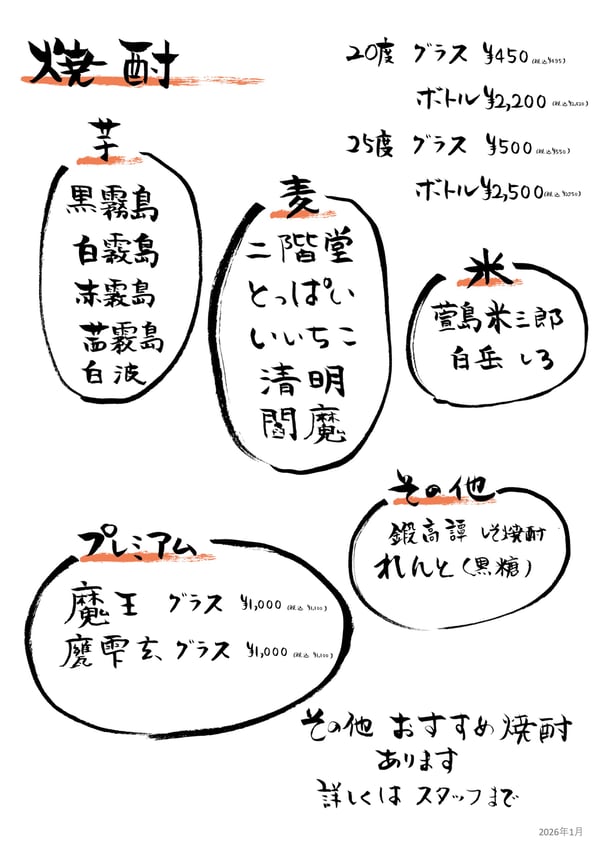 焼酎
20度 グラス ¥450(税込¥495)
ボトル ¥2,200(税込¥2,420)
25度 グラス ¥500(税込¥550)
ボトル ¥2,500(税込¥2,750)
芋
黒霧島
白霧島
赤霧島
茜霧島
白波
麦
二階堂
とっぱい
いいちこ
清明
閻魔
米
萱島米三郎
白岳 しろ
その他
鍛高譚 しそ焼酎
れんと(黒糖)
プレミアム
魔王 グラス ¥1,000(税込¥1,100)
甕雫玄 グラス ¥1,000(税込¥1,100)
その他 おすすめ焼酎
あります
詳しくは スタッフまで
2026年1月